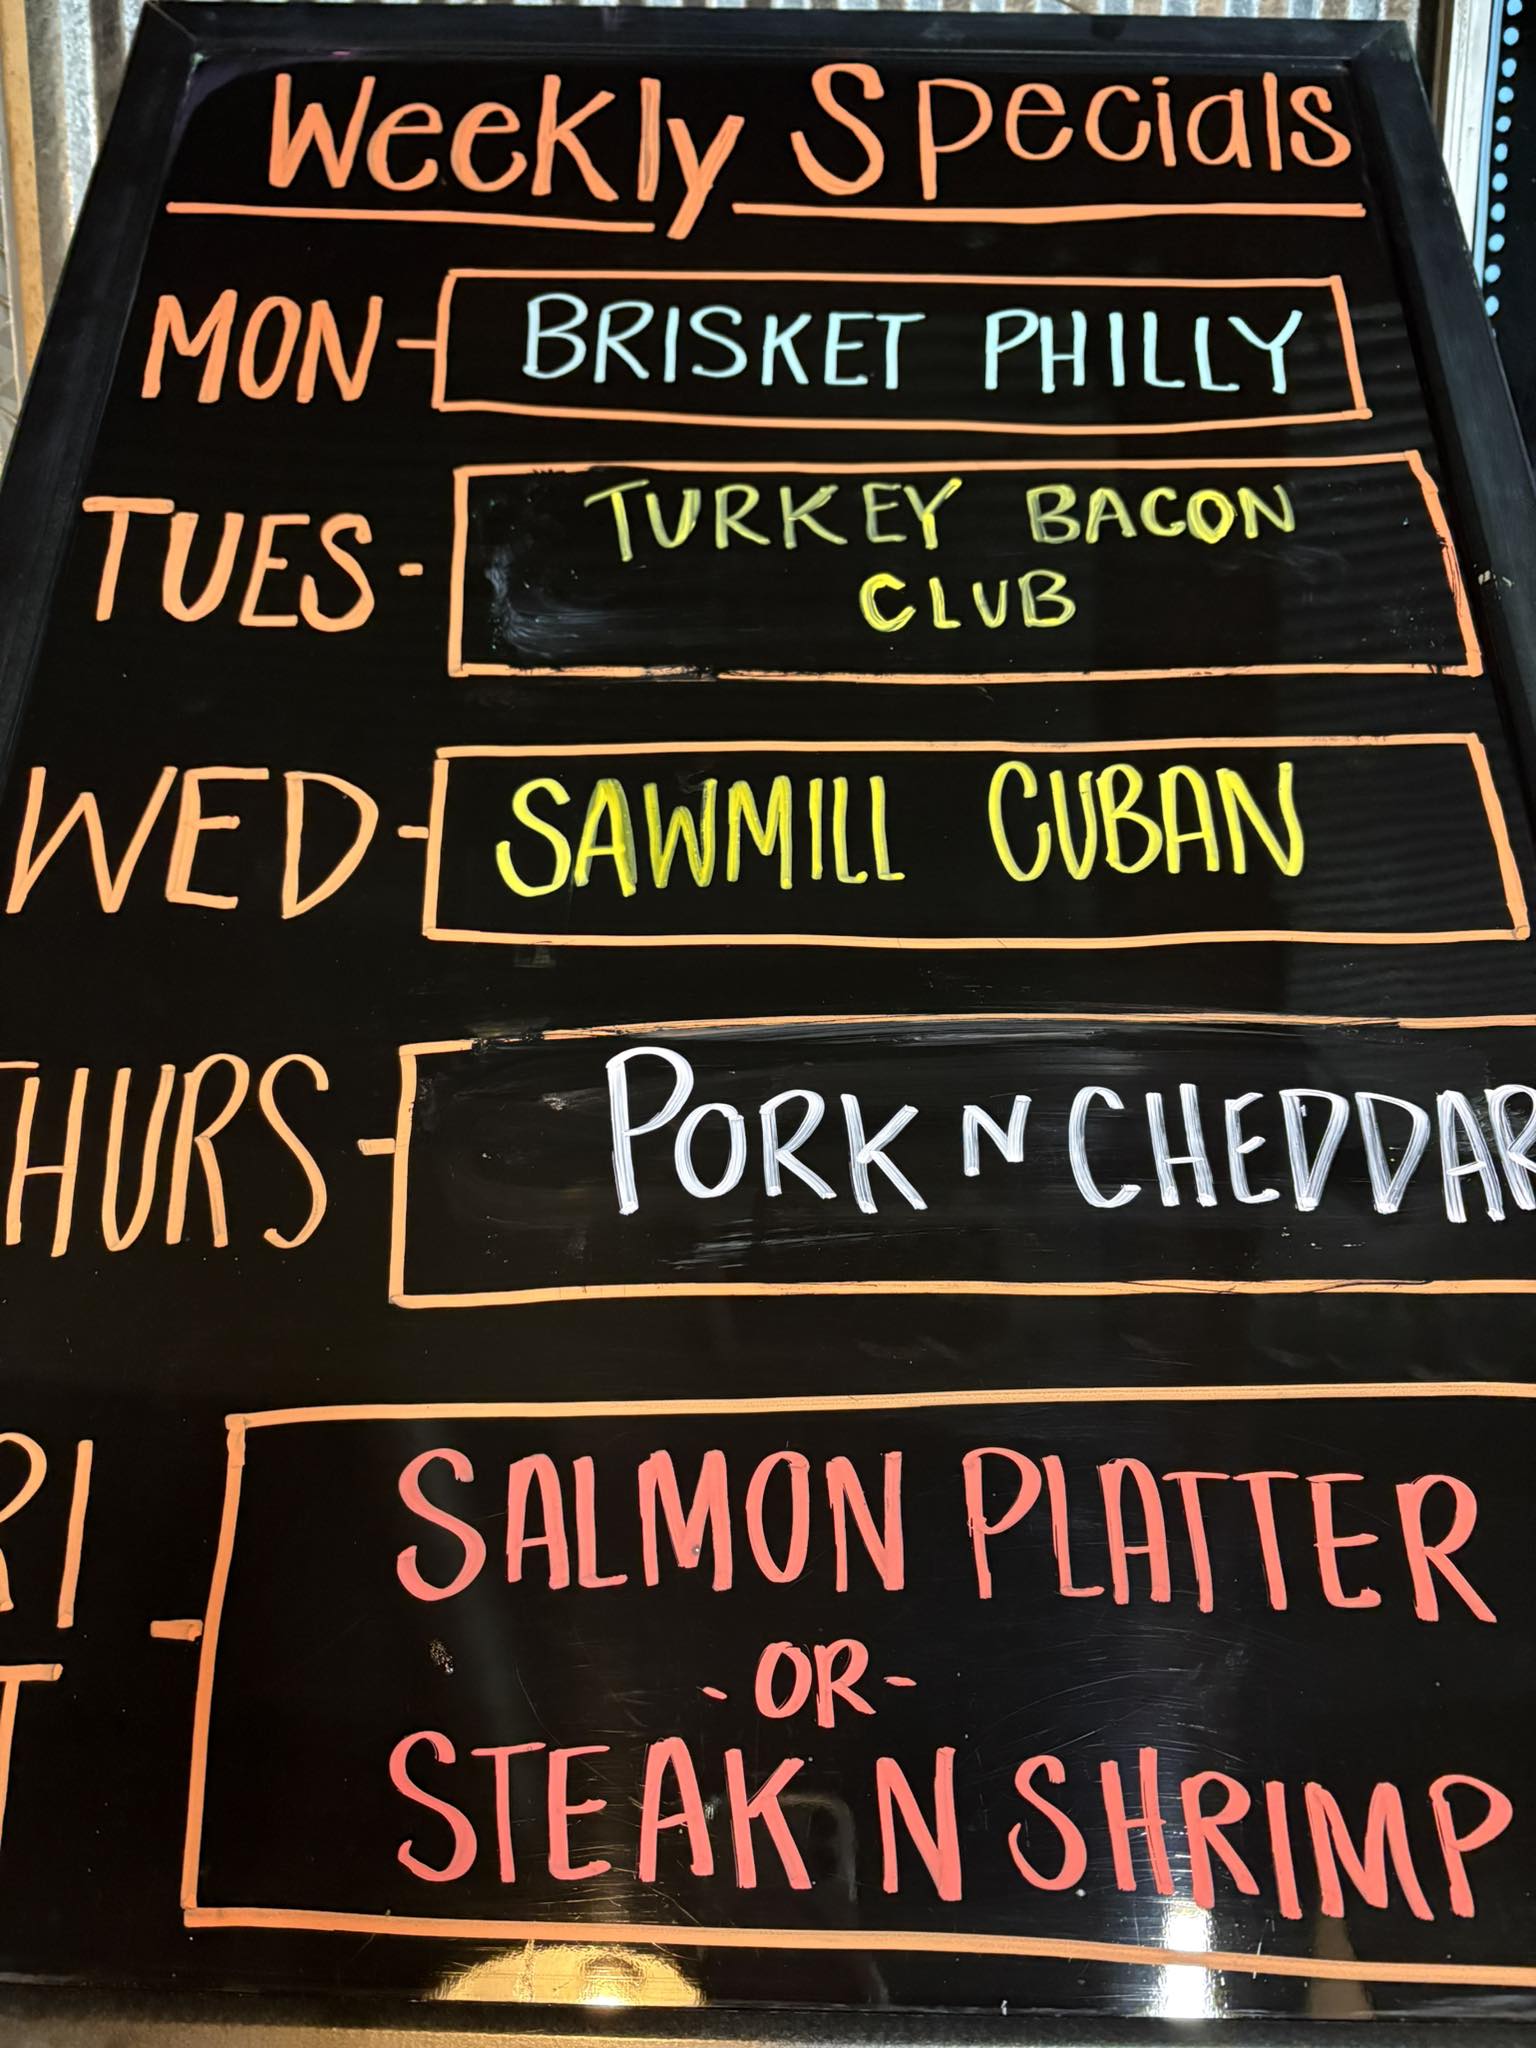 Weekly Specials
MON - BRISKET PHILLY
TUES - TURKEY BACON
CLUB
WED - SAWMILL CUBAN
THURS - PORK N CHEDDAR
RI
SALMON PLATTER
- OR -
T
STEAK N SHRIMP